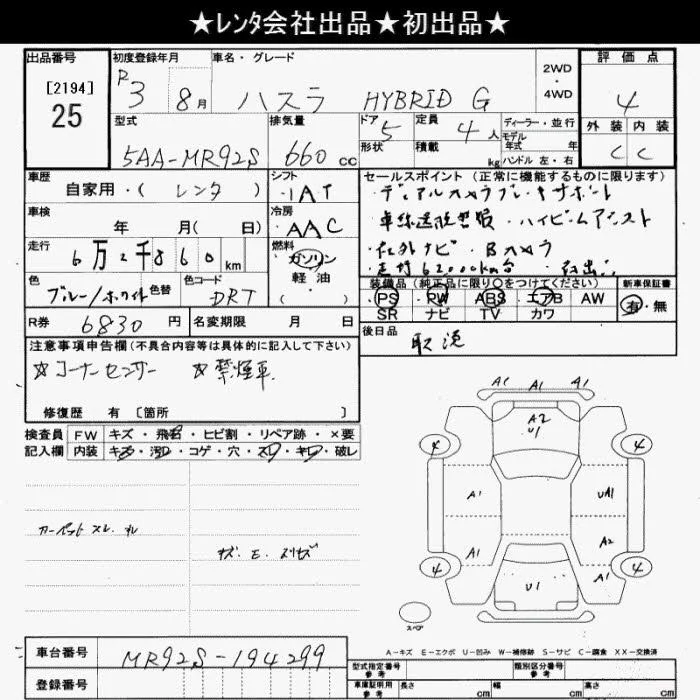 ★レンタ会社出品★初出品★
出品番号 初度登録年月 車名・グレード 2WD・4WD 評価点
[2194] R3 8月 ハスラ HYBRID G 4
25
型式 排気量 ドア 定員 ディーラー・並行 外装 内装
5AA-MR92S 660cc 5 4人 モデル年式 年 C C
形状 積載 kg ハンドル 左・右
車歴 シフト セールスポイント(正常に機能するものに限ります)
自家用・(レンタ) IAT ・デュアルカメラブレーキサポート
車検 冷房 ・車線逸脱警報・ハイビームアシスト
年 月(日) AAC ・社外ナビ・Bカメラ
走行 燃料 ・走行62000km台・
6万2千860km ガソリン
軽油
( )
色 色替 色コード 装備品(純正品に限り○をつけてください) 新車保証書
ブルー/ホワイト DRT PS PW ABS エアB AW 有・無
SR ナビ TV カワ
R券 6830円 名変期限 月 日 後日品
取説
注意事項申告欄(不具合内容等は具体的に記入して下さい)
☆コーナーセンサー ☆禁煙車
修復歴 有 [箇所 ]
検査員 FW キズ・飛石・ヒビ割・リペア跡・×要
記入欄 内装 キズ・汚レ・コゲ・穴・スレ・キレ・破レ
カーペット スレ
キズ・E・スリキズ
A1 A1 A1
A2
U1
4 4
A1 UA1
A2
A1 A1
4 4
U1
スペア
A-キズ E-エクボ U-凹み W-補修跡 S-サビ C-腐食 XX-交換済
車台番号 MR92S-194299
登録番号
型式指定番号 参考 類別区分番号 参考
車庫証明用 参考 長さ cm 幅 cm 高さ cm